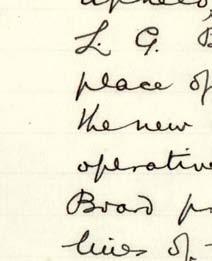 L. G.
place of
the new
operative
Board
lines of